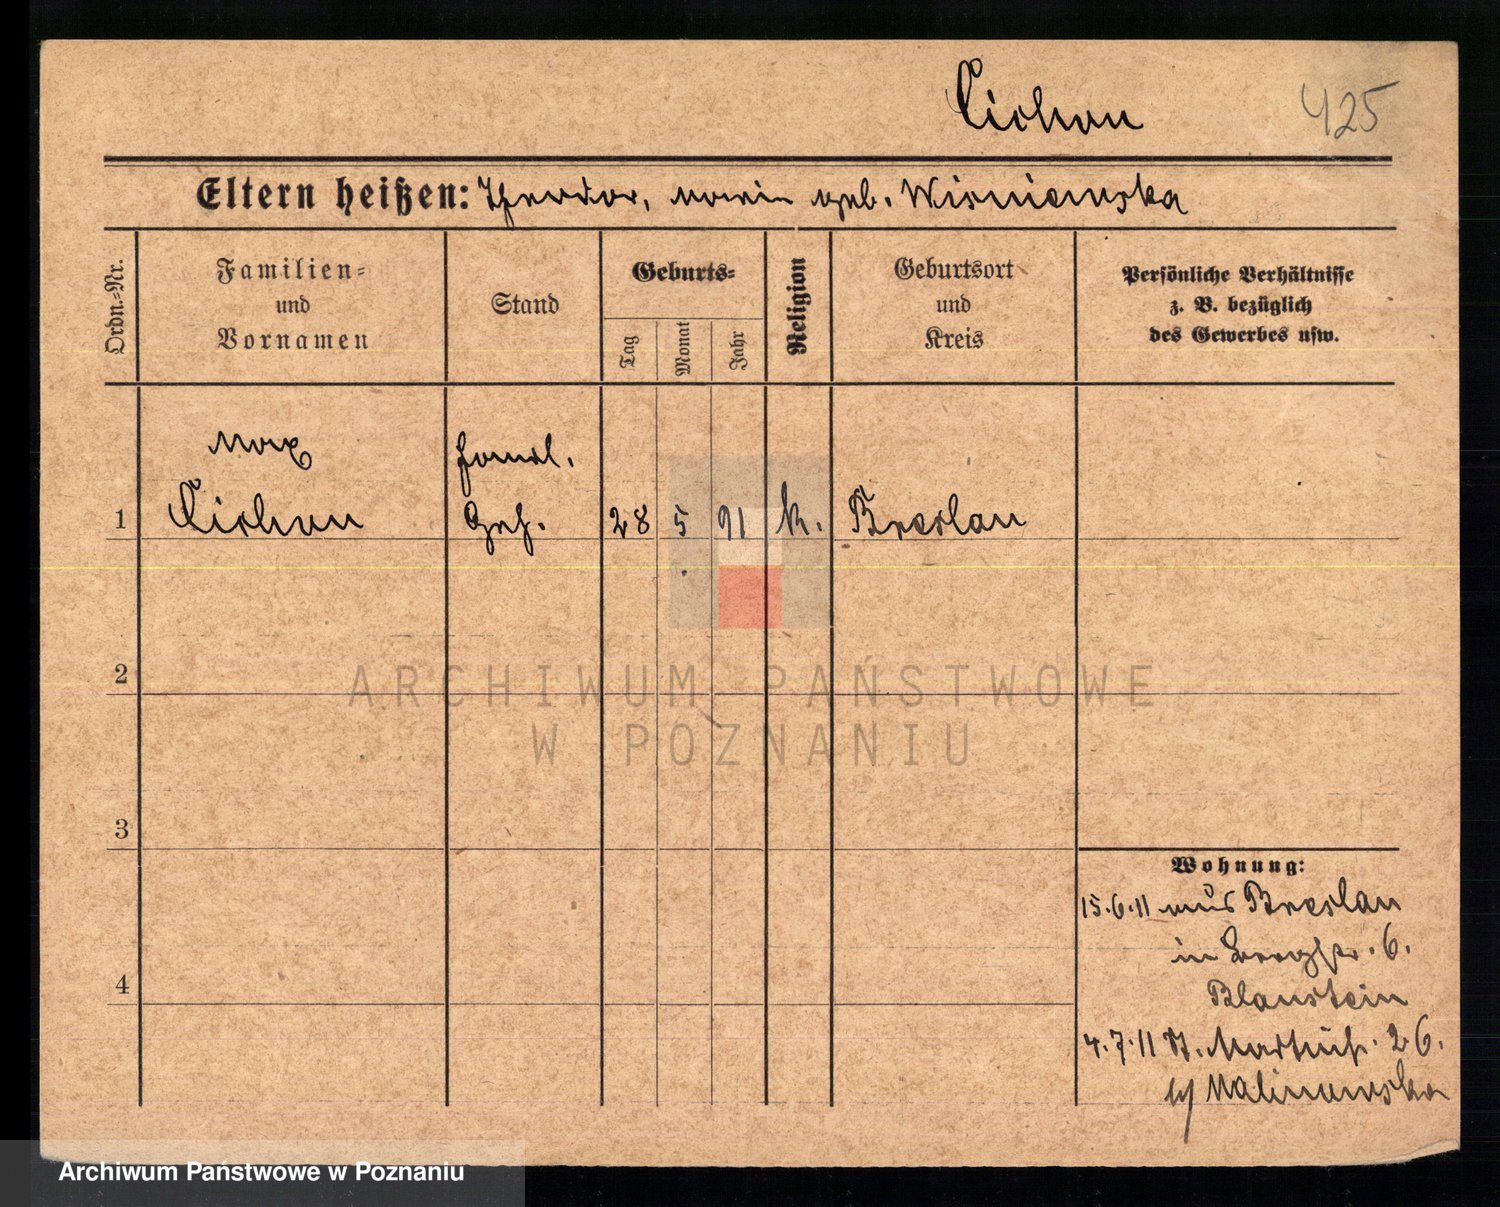 Cichon
425
Eltern heißen: Theodor, Marie geb. Wisniewska
Ordn.-Nr.
Familien-
und
Vornamen
Stand
Geburts-
Tag
Monat
Jahr
Religion
Geburtsort
und
Kreis
Persönliche Verhältnisse
z. B. bezüglich
des Gewerbes usw.
Max
Handl.
1 Cichon Geh. 28 5 91 k. Breslau
2
3
4
Wohnung:
15.6.11 aus Breslau
in 6.
Blaustein
4.7.11 St. Martinstr. 26.
b/ Malinowska
ARCHIWUM PAŃSTWOWE
W POZNANIU
Archiwum Państwowe w Poznaniu